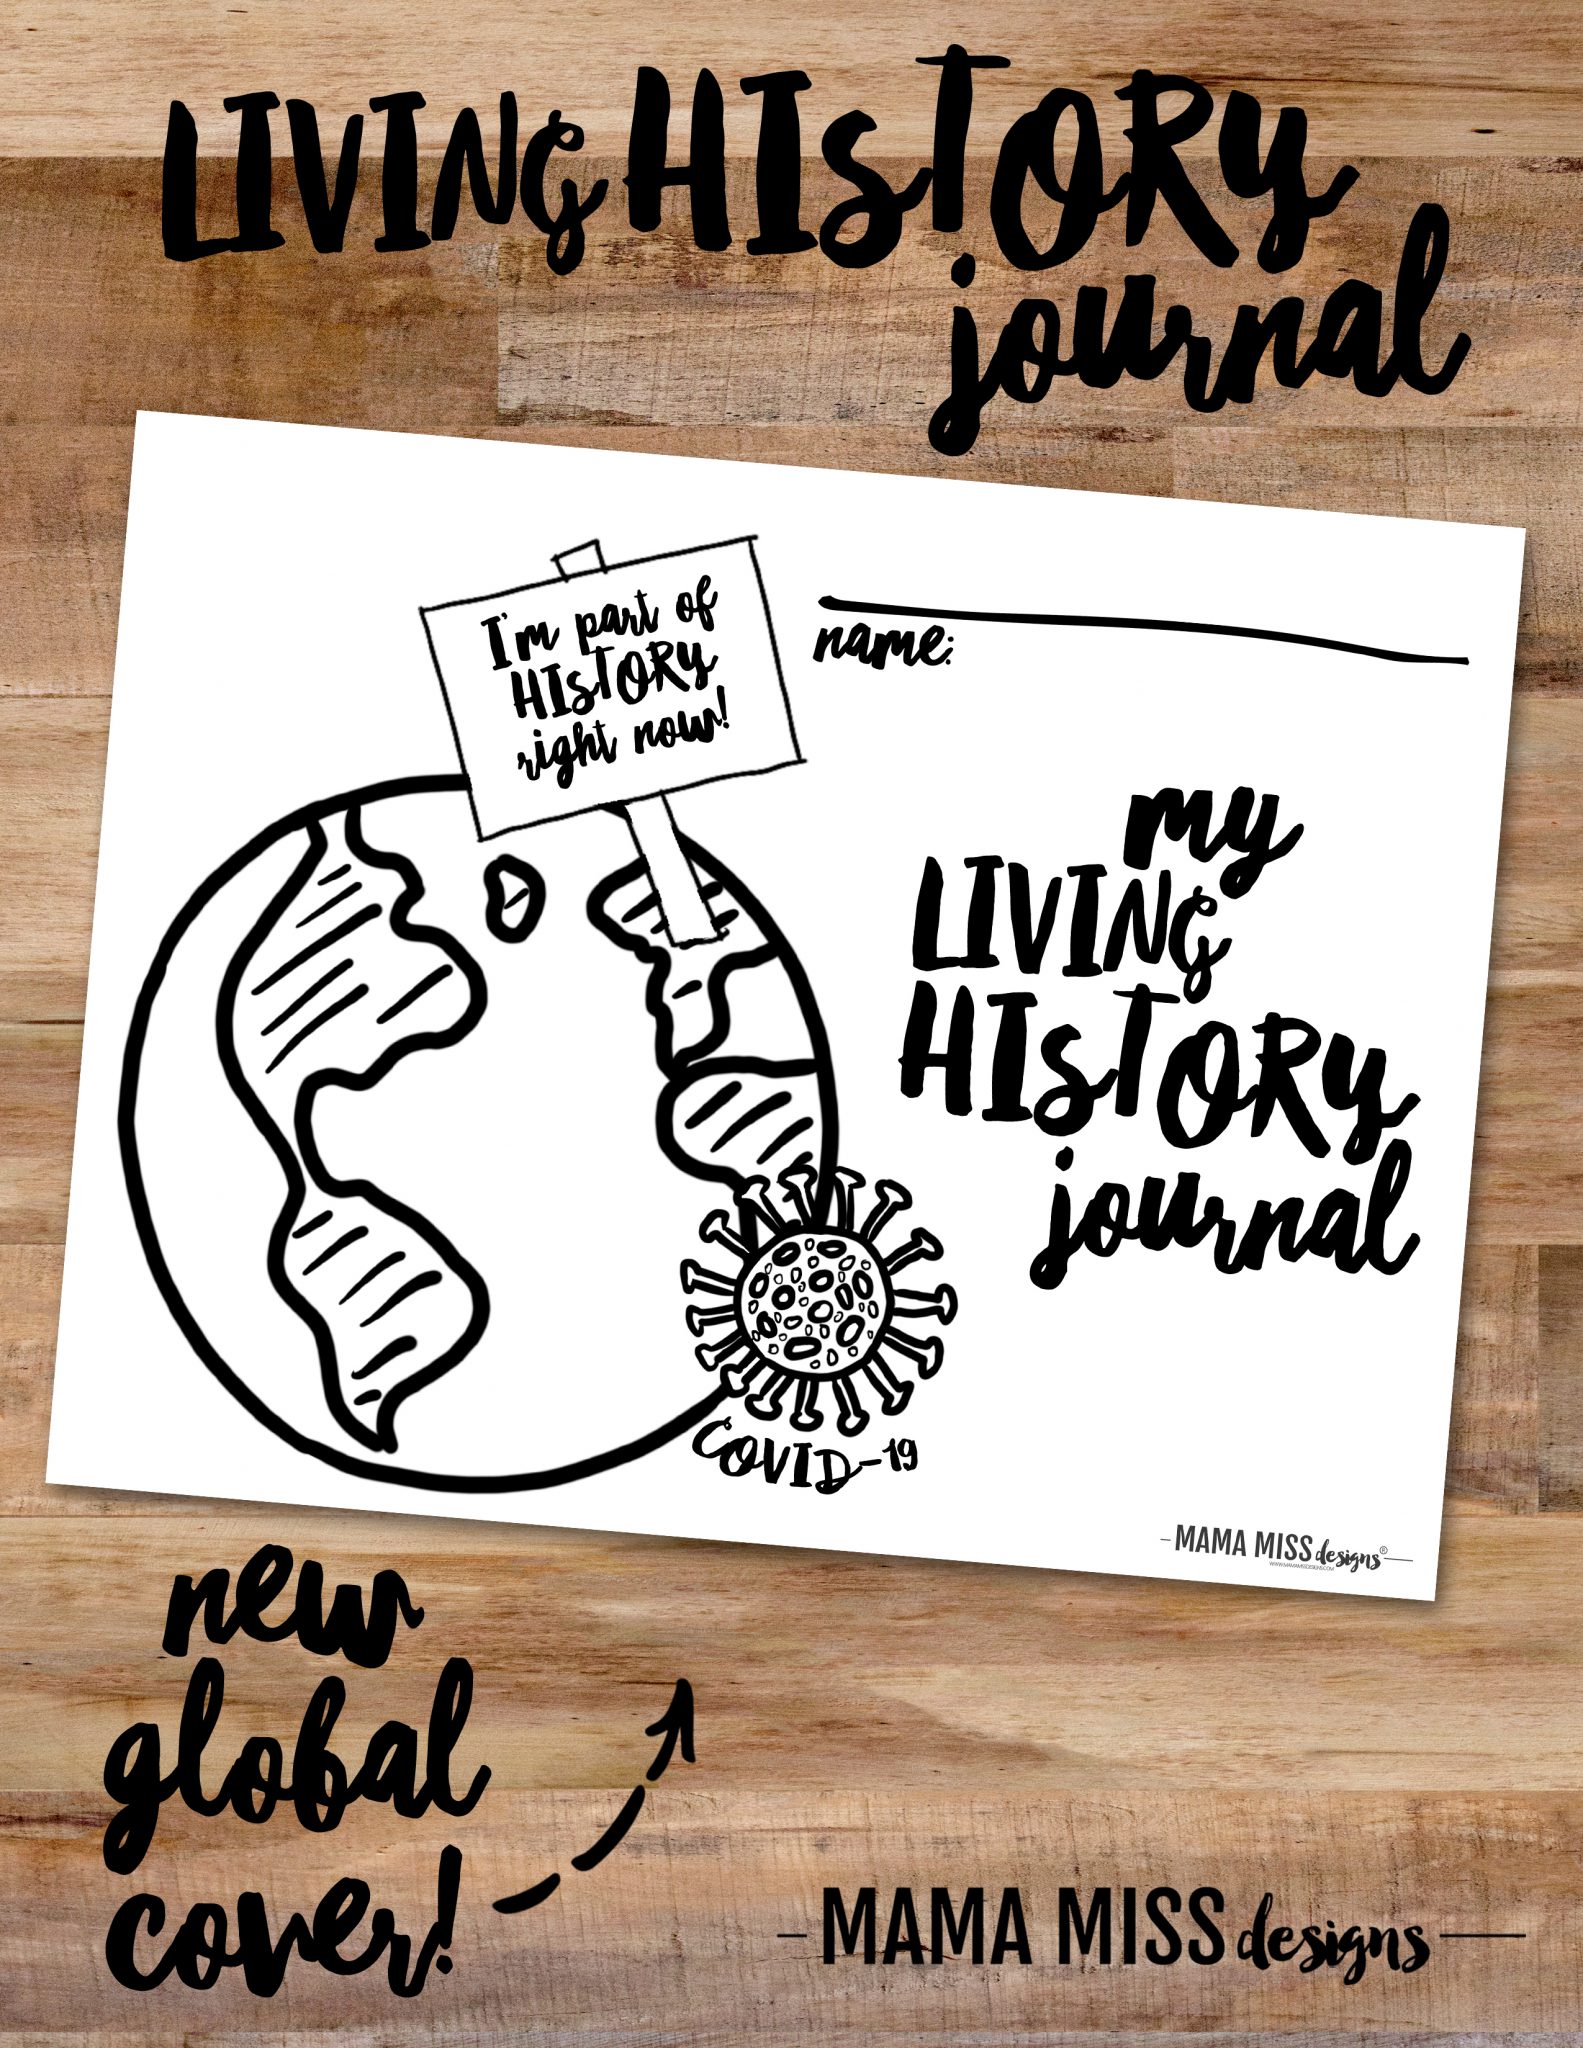 LIVING HISTORY
journal
I'm part of
HISTORY
right now!
name:
my
LIVING
HISTORY
journal
COVID-19
- MAMA MISS designs® —
WWW.MAMAMISSDESIGNS.COM
new
global
cover!
- MAMA MISS designs —